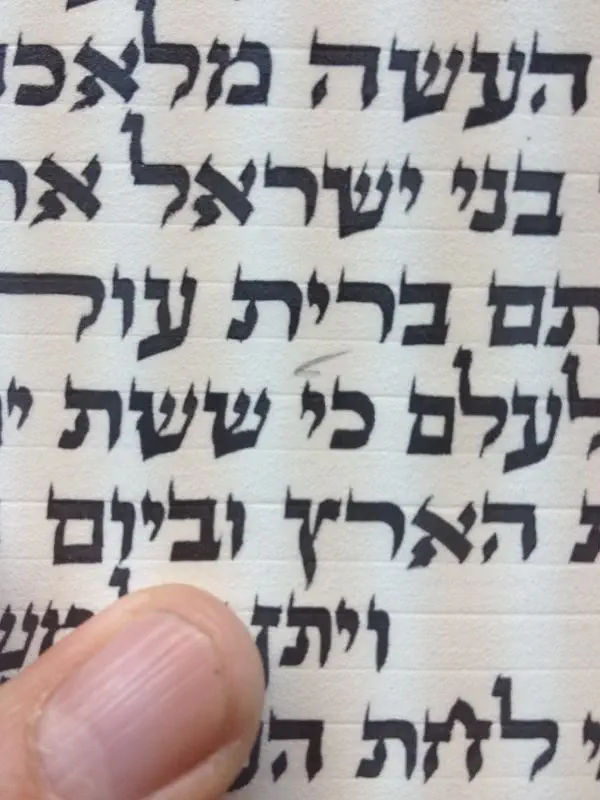 העשה מלאכ
בני ישראל את
תם ברית
לעלם כי ששת
ת הארץ וביום
ויתן
י לחת